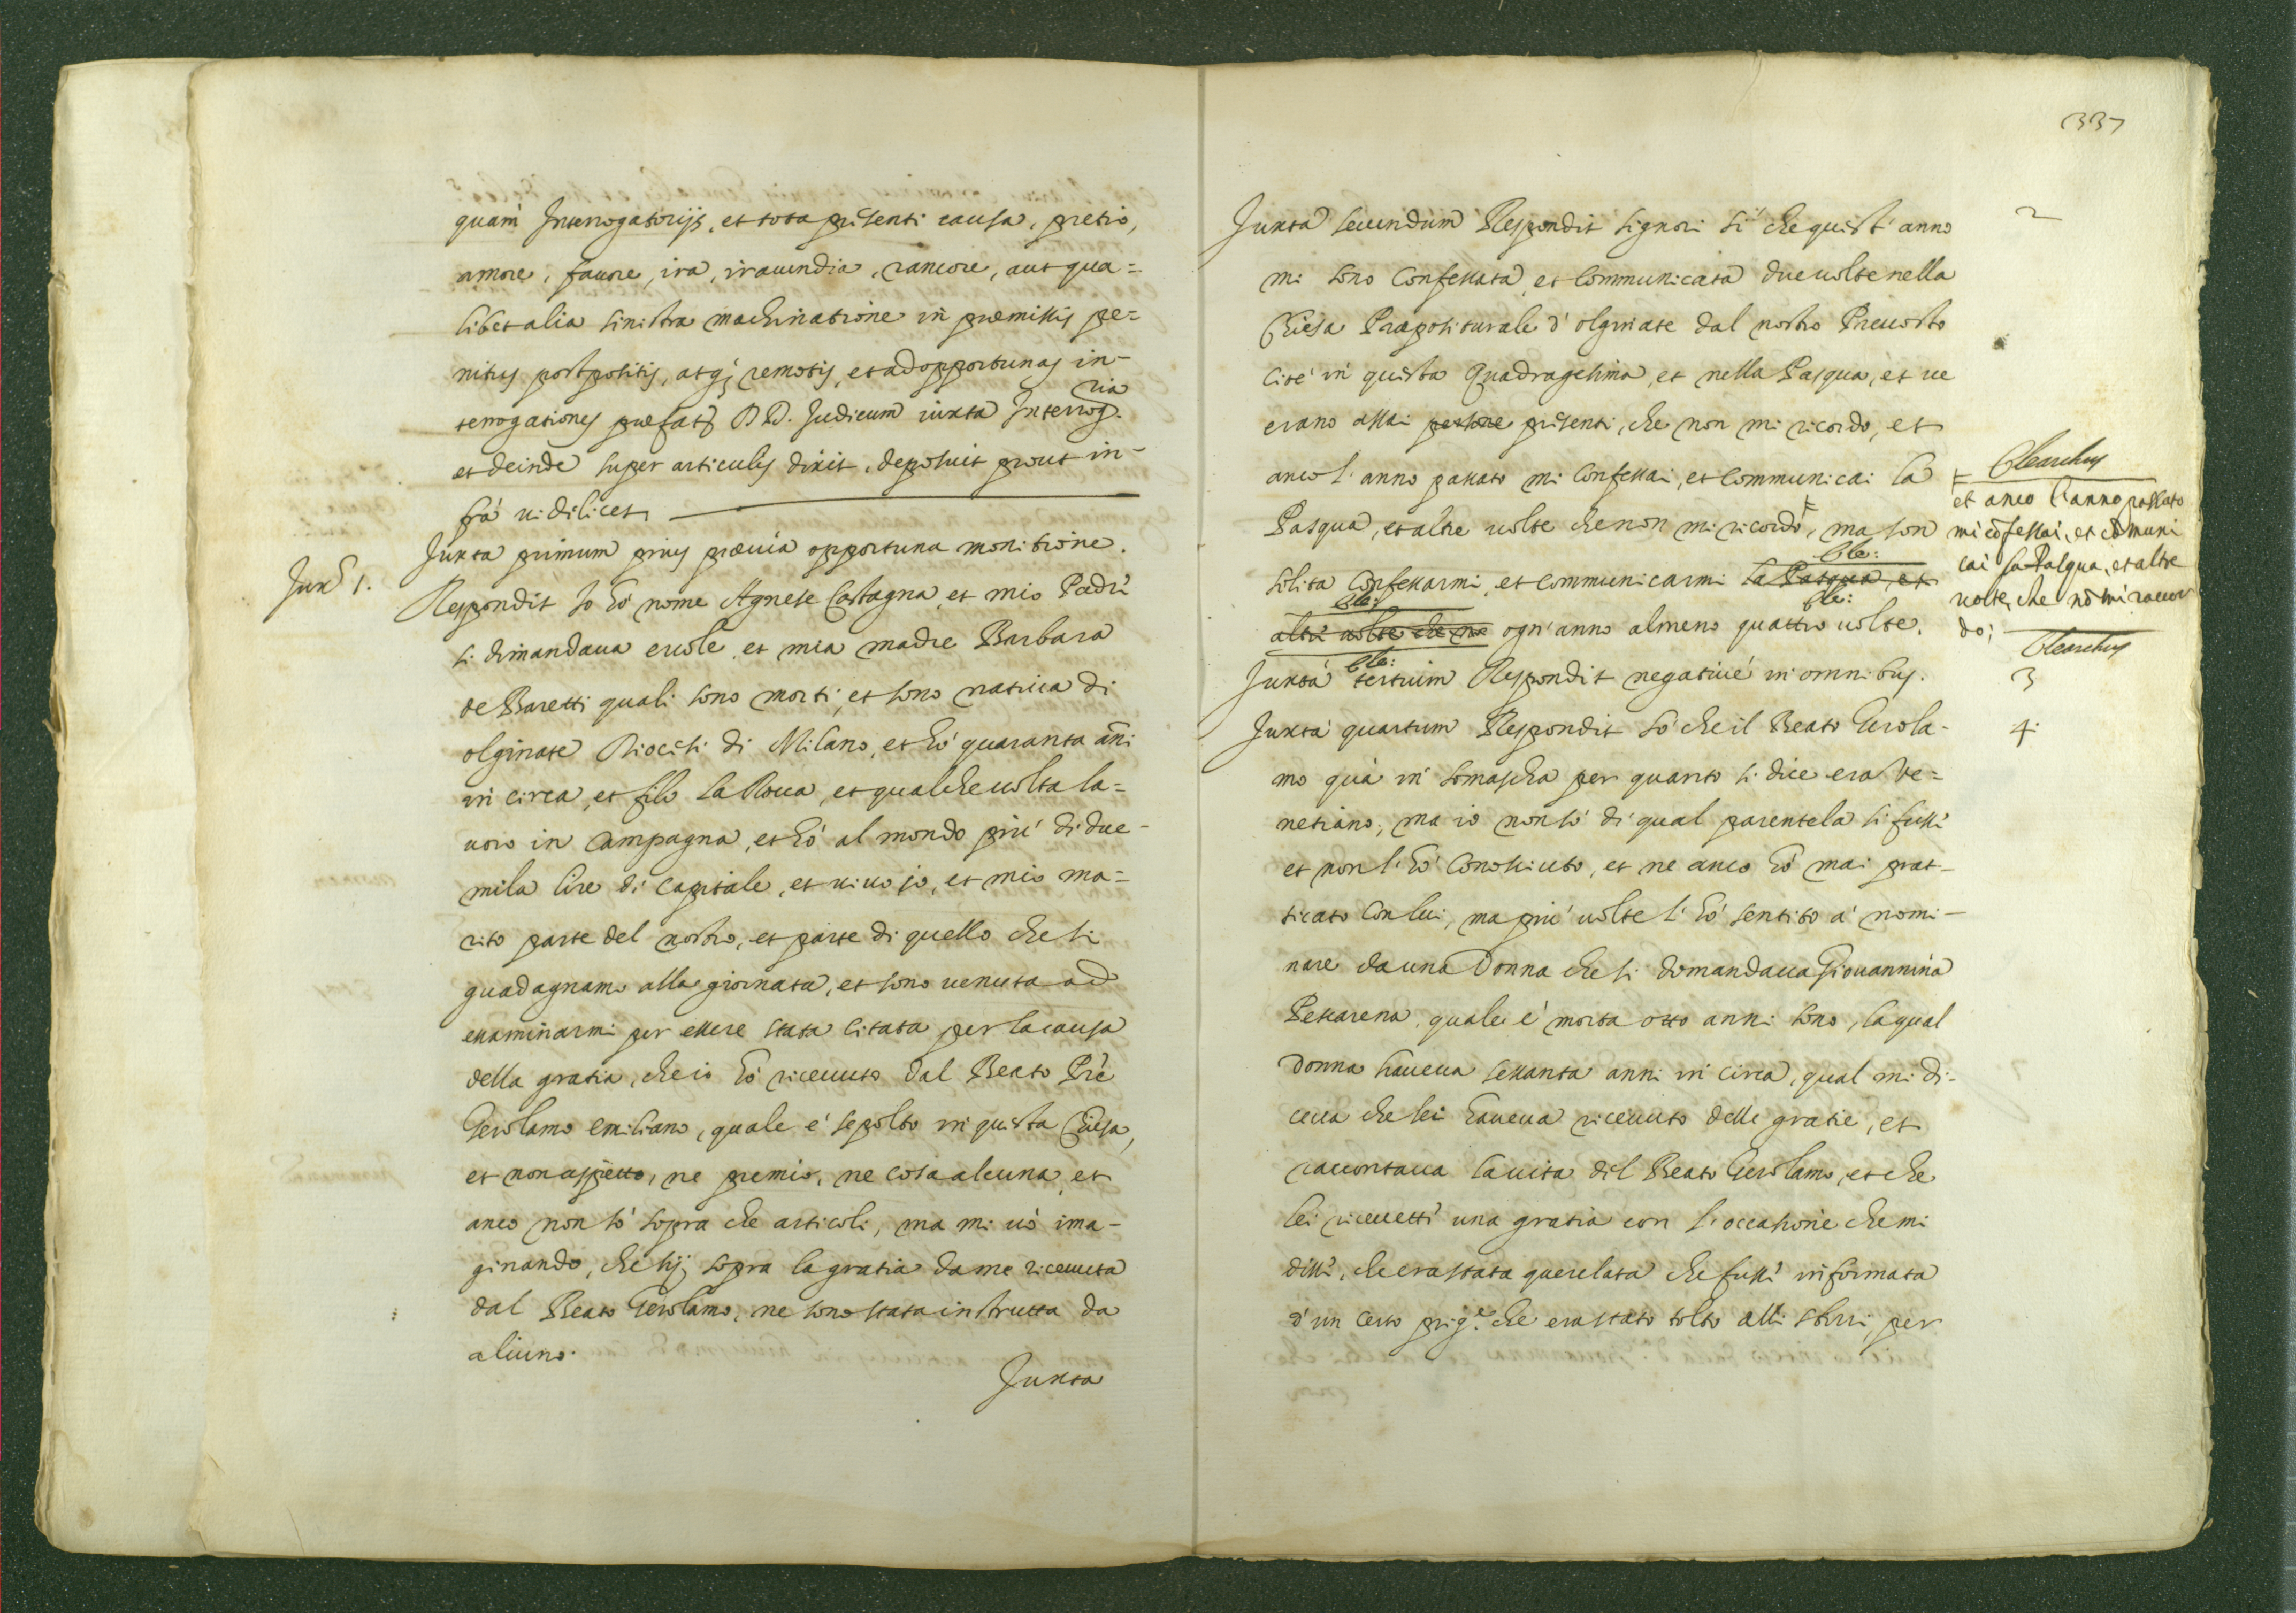 quam Interrogatorijs, et tota pñsenti causa, pretio,
amore, fauore, ira, iracundia, rancore, aut qua=
libet alia sinistra machinatione in præmissis pe=
nitus postpositis, atq; remotis, et ad opportunas in-
terrogationes præfat DD. Judicum iuxta Interrog.ria
et deinde super articulis dixit, deposuit prout in-
frà uidilicet,
Juxta primum prius præuia opportuna monitione.
Jux 1.
Respondit Io hò nome Agnese Castagna, et mio Padrì
si dimandaua ercole, et mia madre Barbara
de Baretti quali sono morti, et sono natiua di
olginate Diocesi di Milano, et hò quaranta añi
in circa, et filo la Rocca, et qualche uolta la=
uoro in Campagna, et hò al mondo più di due-
mila lire di Capitale, et uiuo jo, et mio ma=
rito parte del nostro, et parte di quello che si
guadagnamo alla giornata, et sono uenuta ad
examinarmi per essere stata citata per la causa
della gratia, che io hò riceuuto dal Beato Prè
Gerolamo emiliano, quale è sepolto in questa Chiesa,
et non aspetto, ne premio, ne cosa alcuna, et
anco non sò sopra che articoli, ma mi uò ima-
ginando, che sij sopra la gratia da me riceuuta
dal Beato Gerolamo, ne sono stata instrutta da
alcuno.
Juxta
337
Juxta secundum Respondit signori sì che quest' anno
2
mi sono Confessata, et Communicata due uolte nella
Chiesa Præpositurale d' olginate dal nostro Preuosto
cioè in questa Quadragesima, et nella Pasqua, et ue
erano assai persone prisenti, che non mi ricordo, et
anco l' anno passato mi Confessai, et Communicai la
Pasqua, et altre uolte che non mi ricordo, ma son
solita Confessarmi, et Communicarmi la Pasqua, et
altre uolte che no ogn' anno almeno quattro uolte.
Clearchus
et anco l'anno passato
mi cõfessai, et cõmuni
cai la Pasqua, et altre
uolte, che nõ mi raccor
do;
Clearchus
Juxta tertium Respondit negatiuè in omnibus.
3
Juxta quartum Respondit sò che il Beato Gerola-
4.
mo quà in somascha per quanto si dice era Ve=
netiano, ma io non sò di qual parentela si fussi
et non l' hò Conosciuto, et ne anco hò mai prat-
ticato con lui, ma più uolte l' hò sentito à nomi-
nare da una Donna che si domandaua Giouannina
Pessarena, quale è morta otto anni sono, la qual
Donna haueua sessanta anni in circa, qual mi di-
ceua che lei haueua riceuuto delle gratie, et
raccontaua la uita dil Beato Gerolamo, et che
lei riceuetti una gratia con l'occasione che mi
dissi, che era stata querelata che fussi informata
d' un certo prig.e che era stato tolto alli sbirri, per